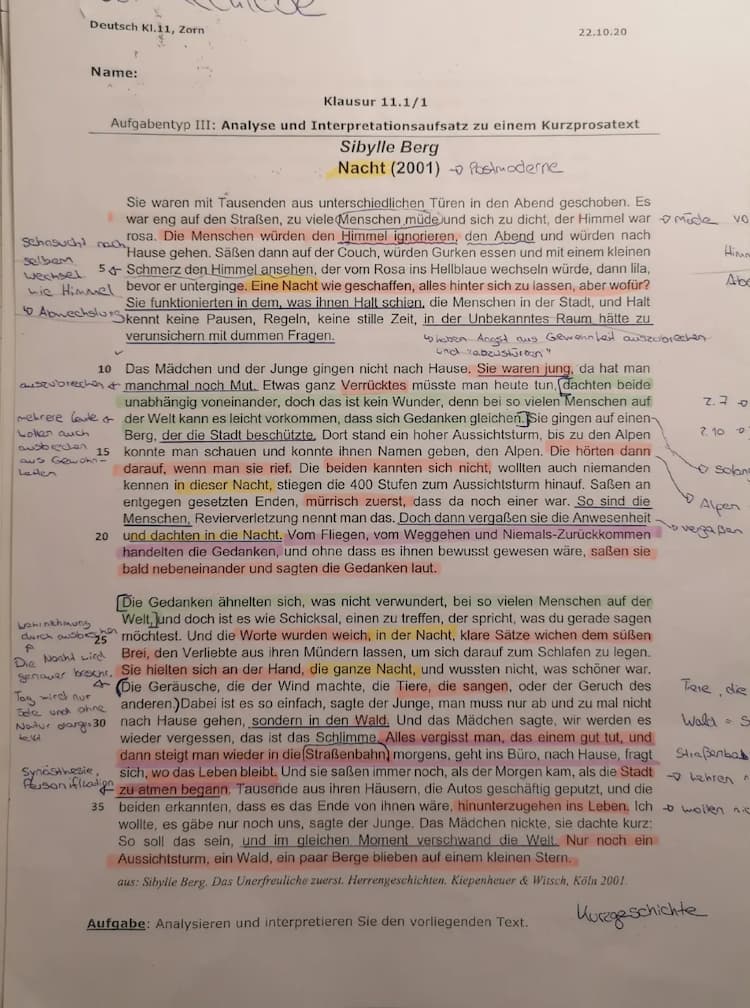 Deutsch Kl.11, Zorn
22.10.20
Name:
Klausur 11.1/1
Aufgabentyp III: Analyse und Interpretationsaufsatz zu einem Kurzprosatext
Sibylle Berg
Nacht (2001) → Postmoderne
Sie waren mit Tausenden aus unterschiedlichen Türen in den Abend geschoben. Es
war eng auf den Straßen, zu viele Menschen müde und sich zu dicht, der Himmel war → müde
rosa. Die Menschen würden den Himmel ignorieren, den Abend und würden nach
Hause gehen. Säßen dann auf der Couch, würden Gurken essen und mit einem kleinen
5 Schmerz den Himmel ansehen, der vom Rosa ins Hellblaue wechseln würde, dann lila,
bevor er unterginge. Eine Nacht wie geschaffen, alles hinter sich zu lassen, aber wofür?
Sie funktionierten in dem, was ihnen Halt schien, die Menschen in der Stadt, und Halt
kennt keine Pausen, Regeln, keine stille Zeit, in der Unbekanntes Raum hätte zu
verunsichern mit dummen Fragen.
Sehnsucht nach
selbem
Wechsel
wie Himmel
↳ Abwechslung
↳ haben Angst aus Gewohnheit auszubrechen
und "abzustürzen"
10 Das Mädchen und der Junge gingen nicht nach Hause. Sie waren jung, da hat man
manchmal noch Mut. Etwas ganz Verrücktes müsste man heute tun, dachten beide
unabhängig voneinander, doch das ist kein Wunder, denn bei so vielen Menschen auf
der Welt kann es leicht vorkommen, dass sich Gedanken gleichen. Sie gingen auf einen
Berg, der die Stadt beschützte. Dort stand ein hoher Aussichtsturm, bis zu den Alpen
15 konnte man schauen und konnte ihnen Namen geben, den Alpen. Die hörten dann
darauf, wenn man sie rief. Die beiden kannten sich nicht, wollten auch niemanden
kennen in dieser Nacht, stiegen die 400 Stufen zum Aussichtsturm hinauf. Saßen an
entgegen gesetzten Enden, mürrisch zuerst, dass da noch einer war. So sind die
Menschen, Revierverletzung nennt man das. Doch dann vergaßen sie die Anwesenheit
20 und dachten in die Nacht. Vom Fliegen, vom Weggehen und Niemals-Zurückkommen
handelten die Gedanken, und ohne dass es ihnen bewusst gewesen wäre, saßen sie
bald nebeneinander und sagten die Gedanken laut.
auszubrechen
mehrere Leute
wollen auch
ausbrechen
aus Gewohn-
Z.7
Z.10
Alpen
vergaßen
Die Gedanken ähnelten sich, was nicht verwundert, bei so vielen Menschen auf der
Welt, und doch ist es wie Schicksal, einen zu treffen, der spricht, was du gerade sagen
25 möchtest. Und die Worte wurden weich, in der Nacht, klare Sätze wichen dem süßen
Brei, den Verliebte aus ihren Mündern lassen, um sich darauf zum Schlafen zu legen.
Sie hielten sich an der Hand, die ganze Nacht, und wussten nicht, was schöner war.
Die Geräusche, die der Wind machte, die Tiere, die sangen, oder der Geruch des
anderen. Dabei ist es so einfach, sagte der Junge, man muss nur ab und zu mal nicht
30 nach Hause gehen, sondern in den Wald. Und das Mädchen sagte, wir werden es
wieder vergessen, das ist das Schlimme. Alles vergisst man, das einem gut tut, und
dann steigt man wieder in die Straßenbahn, morgens, geht ins Büro, nach Hause, fragt
sich, wo das Leben bleibt. Und sie saßen immer noch, als der Morgen kam, als die Stadt
zu atmen begann. Tausende aus ihren Häusern, die Autos geschäftig geputzt, und die
35 beiden erkannten, dass es das Ende von ihnen wäre, hinunterzugehen ins Leben. Ich
wollte, es gäbe nur noch uns, sagte der Junge. Das Mädchen nickte, sie dachte kurz:
So soll das sein, und im gleichen Moment verschwand die Welt. Nur noch ein
Aussichtsturm, ein Wald, ein paar Berge blieben auf einem kleinen Stern.
Wahrnehmung
durch
Die Nacht wird
genauer beschr.
Tag wird nur
und ohne
Natur darge-
stellt
Synästhesie,
Personifikation
Tiere, die
Wald =
Straßenbah
→ kehren
→ wollen
aus: Sibylle Berg. Das Unerfreuliche zuerst. Herrengeschichten. Kiepenheuer & Witsch, Köln 2001.
Kurzgeschichte
Aufgabe: Analysieren und interpretieren Sie den vorliegenden Text.